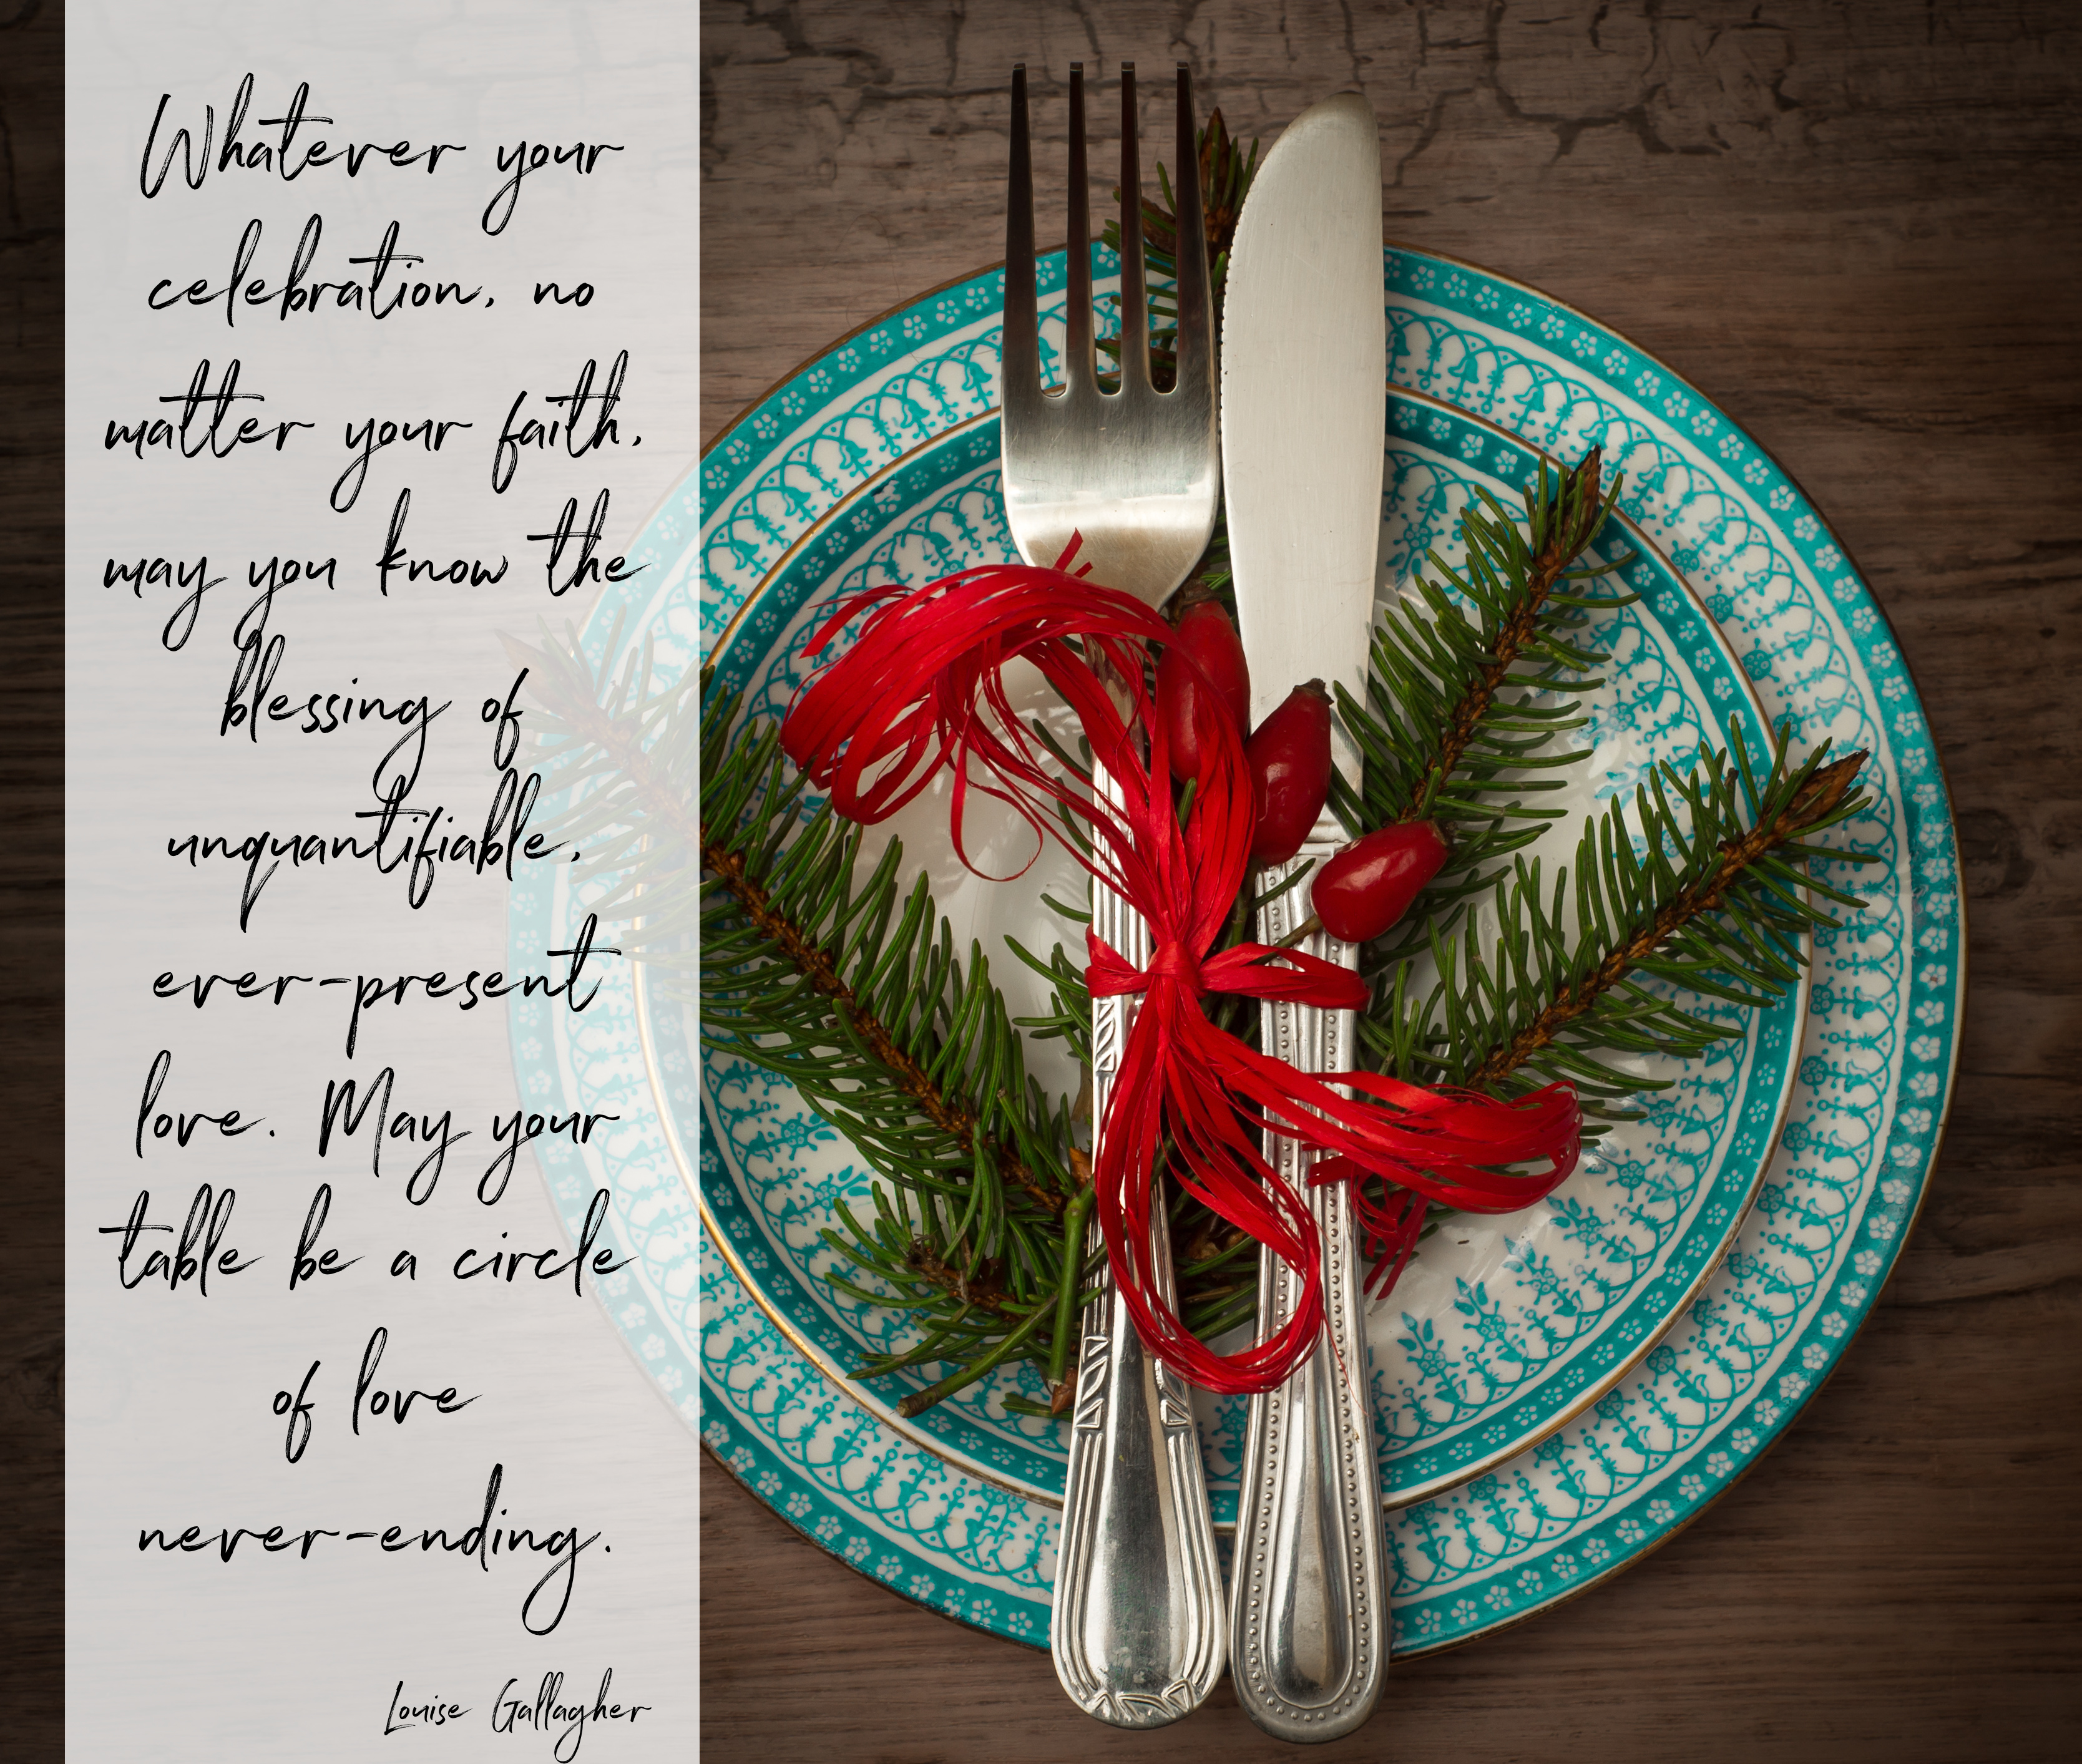 Whatever your
celebration, no
matter your faith,
may you know the
blessing of
unquantifiable,
ever-present
love. May your
table be a circle
of love
never-ending.
Louise Gallagher